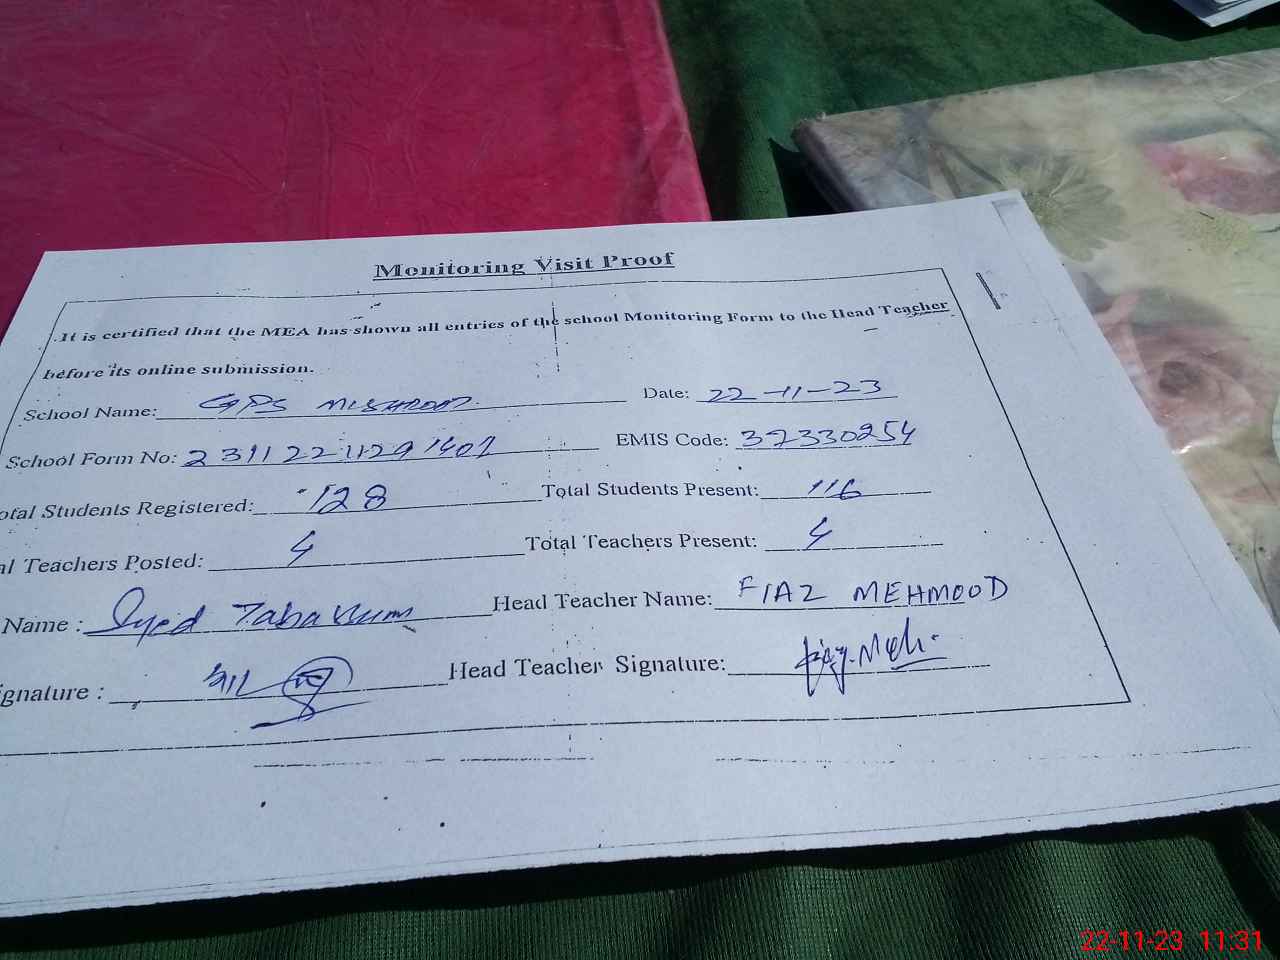 Monitoring Visit Proof
It is certified that the MEA has shown all entries of the school Monitoring Form to the Head Teacher
before its online submission.
School Name: GPS MISHROOM Date: 22-11-23
School Form No: 23112211291407 EMIS Code: 37330254
otal Students Registered: 128 Total Students Present: 116
al Teachers Posted: 4 Total Teachers Present: 4
Name : Syed Tabassum Head Teacher Name: FIAZ MEHMOOD
ignature : Head Teacher Signature:
22-11-23 11:31